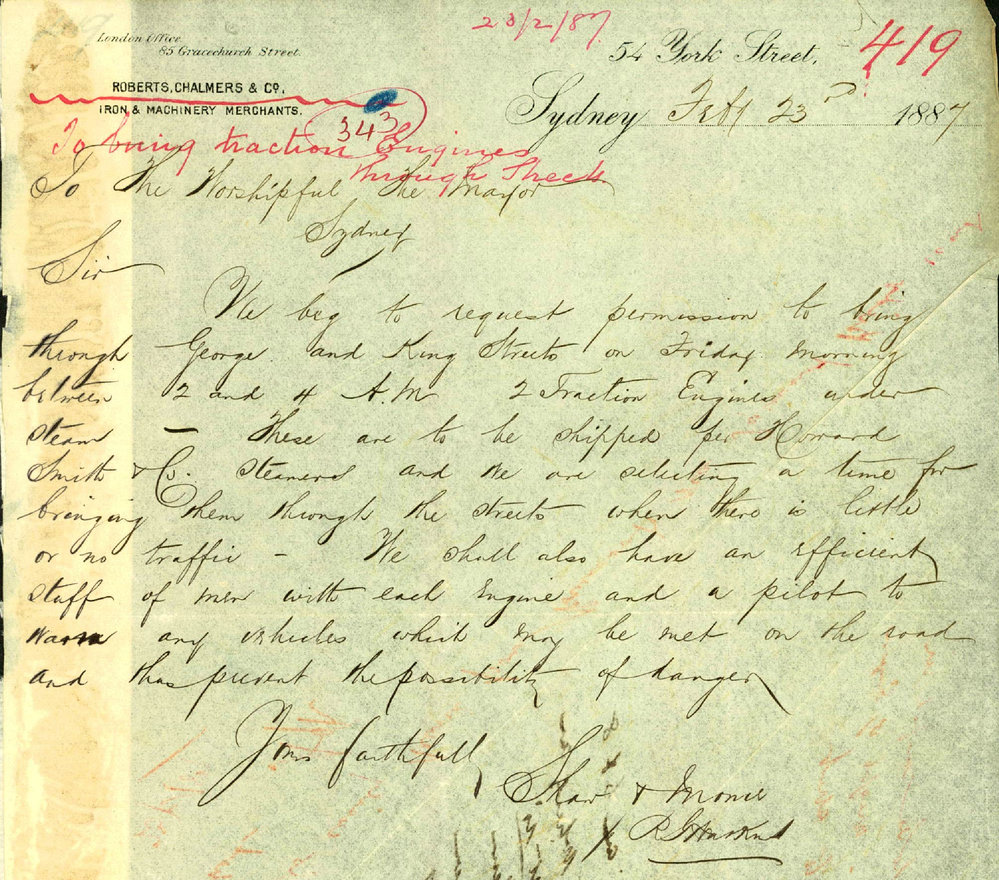 London Office.
85 Gracechurch Street.
23/2/87
54 York Street,
419
ROBERTS, CHALMERS & Co.
IRON & MACHINERY MERCHANTS.
343
Sydney Feby 23rd 1887
To bring traction Engines
through Streets
To The Worshipful The Mayor
Sydney
Sir
We beg to request permission to bring
through George and King Streets on Friday morning
between 2 and 4 A.M 2 Traction Engines under
steam – These are to be shipped per Howard
Smith & Co. steamers and we are selecting a time for
bringing them through the streets when there is little
or no traffic – We shall also have an efficient
staff of men with each Engine and a pilot to
warn any vehicles which may be met on the road
and thus prevent the possibility of danger
Yours faithfully
Shaw &